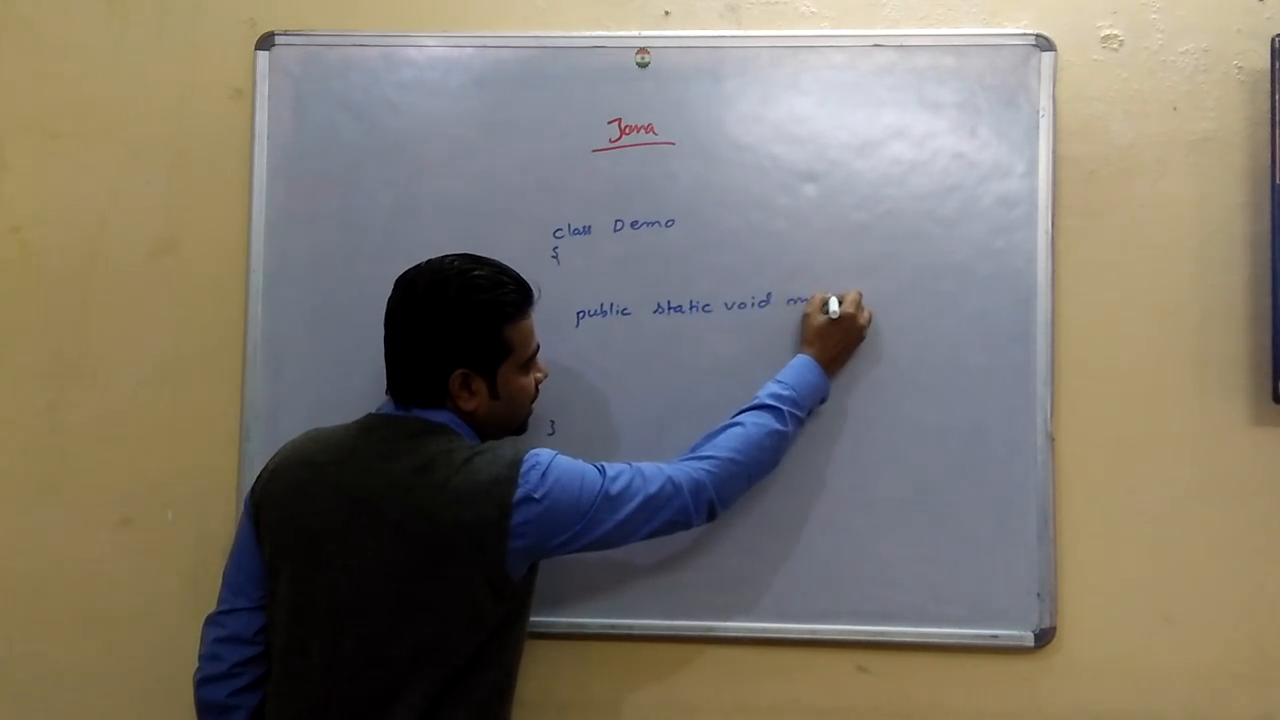 Java
class Demo
{
public static void m
}